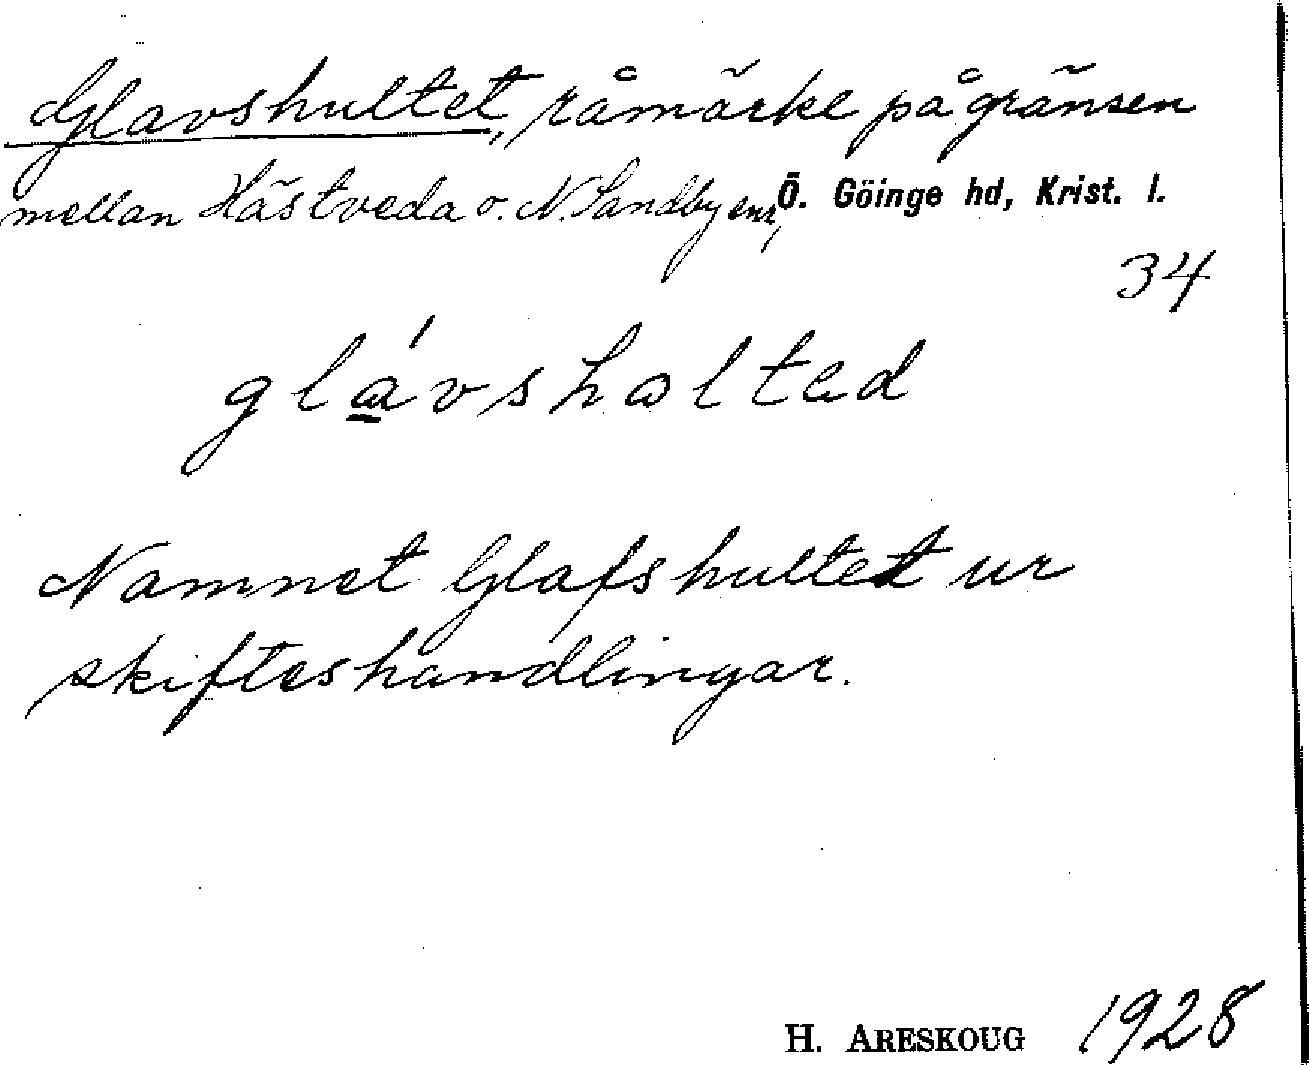 Glavshultet, råmärke på gränsen
mellan Hästveda o. N. Sandby snr, Ö. Göinge hd, Krist. l.
34
glávshʚltad
Namnet Glafshultet ur
skifteshandlingar.
H. ARESKOUG 1928